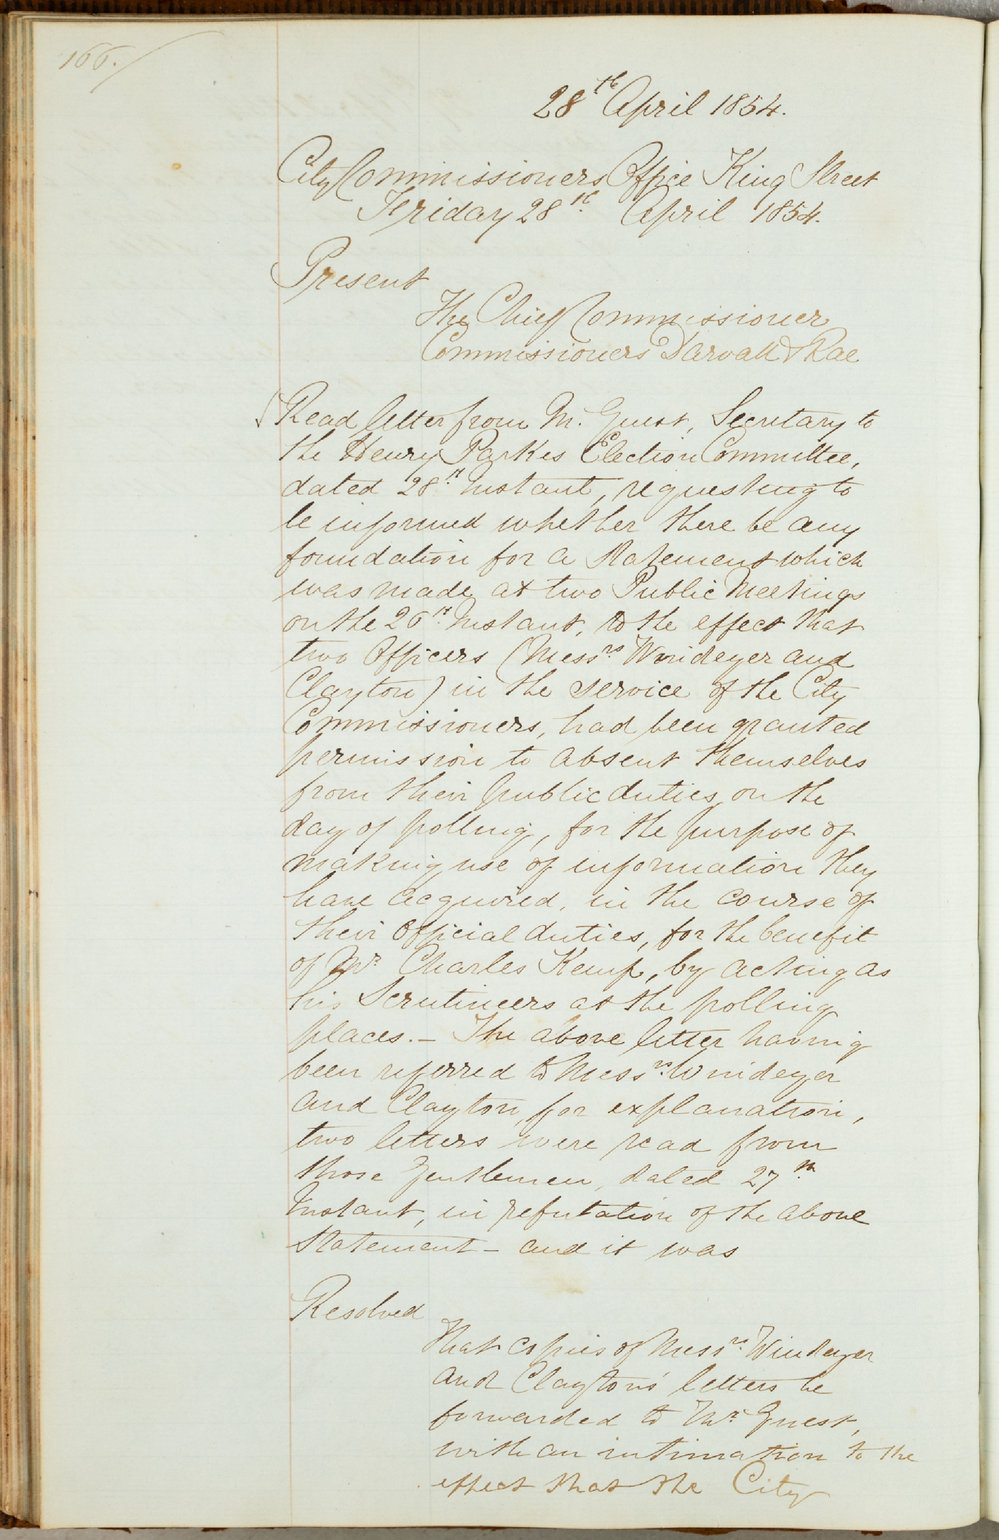 166.
28th April 1854.
City Commissioners Office King Street
Friday 28th April 1854.
Present
The Chief Commissioner
Commissioners Darvall & Rae
Read letter from Mr. Guest, Secretary to
the Henry Parkes Election Committee,
dated 28th Instant, requesting to
be informed whether there be any
foundation for a statement which
was made at two Public Meetings
on the 26th Instant, to the effect that
two Officers (Messrs Windeyer and
Clayton) in the service of the City
Commissioners, had been granted
permission to absent themselves
from their public duties, on the
day of polling, for the purpose of
making use of information they
have acquired, in the course of
their official duties, for the benefit
of Mr. Charles Kemp, by acting as
his Scrutineers at the polling
places. – The above letter having
been referred to Messrs. Windeyer
and Clayton, for explanation,
two letters were read from
those Gentlemen, dated 27th
Instant, in refutation of the above
statement – and it was
Resolved
That copies of Messrs. Windeyer
and Clayton's letters be
forwarded to Mr. Guest,
with an intimation to the
effect that the City